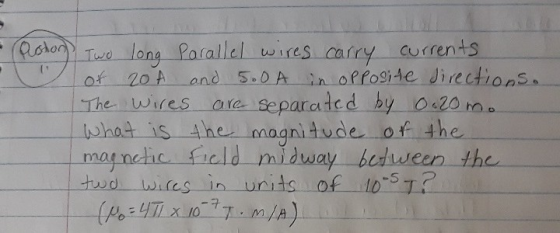 Two long Parallel wires carry currents
of 20A and 5.0A in opposite directions.
The wires are separated by 0.20m.
What is the magnitude of the
magnetic field midway between the
two wires in units of 10⁻⁵ T?
(μ₀=4π × 10⁻⁷ T · m/A)